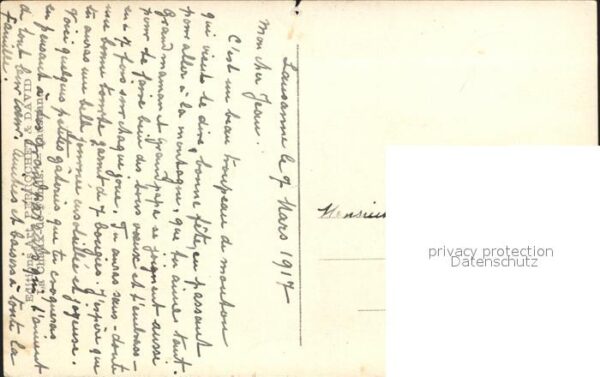 Lausanne le 7 Mars 1917
Mon cher Jean.
C'est un beau troupeau de mouton
qui vient te dire, bonne fête, en passant
pour aller à la montagne, que tu aimes tant.
Grand maman et grand papa se joignent aussi
pour te faire bien des bons vœux et t'embras-
se 7 fois sur chaque joue. Tu auras sans-doute
une bonne tourte garnit de 7 bougies. J'espère que
tu auras une belle journée ensoleillée et joyeuse.
Voici quelques petites gâteries que tu croqueras
en pensant à tes grands parents qui t'aiment
de tout leur cœur. Amitiés et baisers à toute la
famille.
Monsieur
privacy protection
Datenschutz